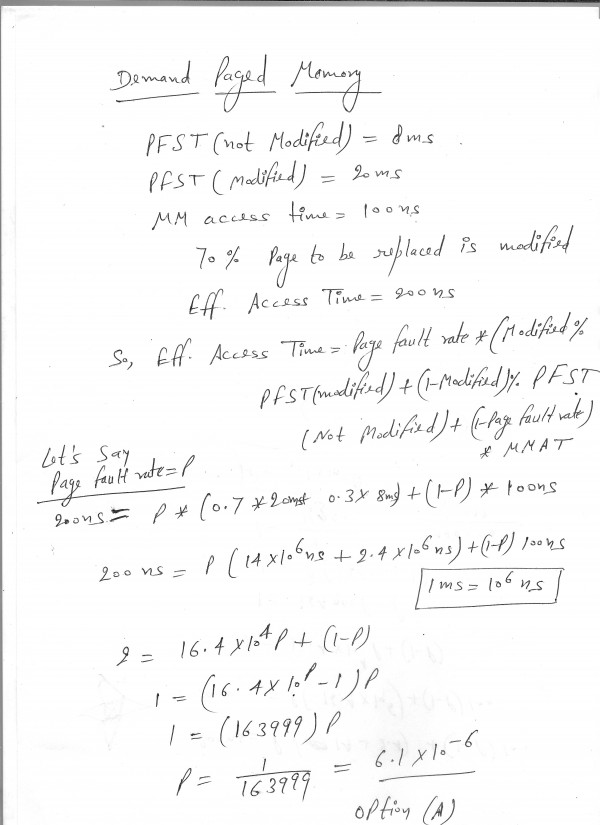 Demand Paged Memory
PFST (not Modified) = 8ms
PFST (Modified) = 20ms
MM access time = 100ns
70% Page to be replaced is modified
Eff. Access Time = 200ns
So, Eff. Access Time = Page fault rate * (Modified %
PFST (modified) + (1-Modified)% PFST
(Not Modified) + (1-Page fault rate)
* MMAT
Let's Say
Page fault rate = P
200ns = P * (0.7 * 20ms+ 0.3 x 8ms) + (1-P) * 100ns
200 ns = P (14 x 10^6 ns + 2.4 x 10^6 ns) + (1-P) 100ns
1ms = 10^6 ns
2 = 16.4 x 10^4 P + (1-P)
1 = (16.4 x 10^P - 1) P
1 = (163999) P
P = 1/163999 = 6.1 x 10^-6
option (A)